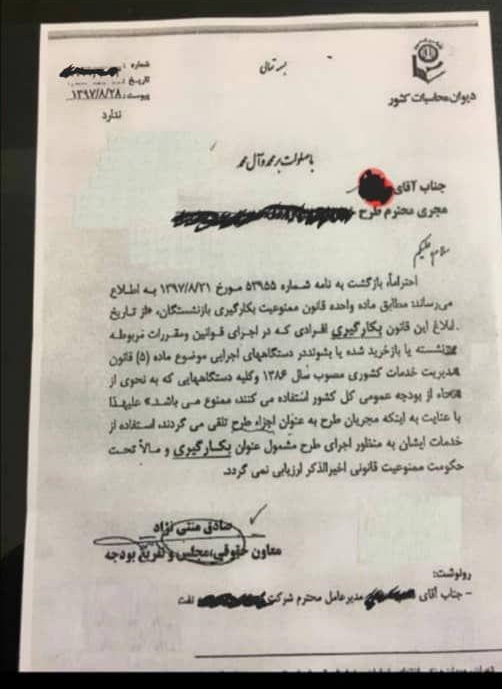 دیوان محاسبات کشور
بسمه تعالی
شماره :
تاریخ :
پیوست: ۱۳۹۷/۸/۲۸
ندارد
با صلوات بر محمد و آل محمد
جناب آقای
مجری محترم طرح
سلام علیکم
احتراماً، بازگشت به نامه شماره ۵۳۹۵۵ مورخ ۱۳۹۷/۸/۲۱ به اطلاع
می‌رساند: مطابق ماده واحده قانون ممنوعیت بکارگیری بازنشستگان، «از تاریخ
ابلاغ این قانون بکارگیری افرادی که در اجرای قوانین ومقررات مربوطه
بازنشسته یا بازخرید شده یا بشوند،در دستگاههای اجرایی موضوع ماده (۵) قانون
مدیریت خدمات کشوری مصوب سال ۱۳۸۶ وکلیه دستگاههایی که به نحوی از
انحاء از بودجه عمومی کل کشور استفاده می کنند، ممنوع می باشد» علیهذا
با عنایت به اینکه مجریان طرح به عنوان اجزاء طرح تلقی می گردند، استفاده از
خدمات ایشان به منظور اجرای طرح مشمول عنوان بکارگیری و مآلاً تحت
حکومت ممنوعیت قانونی اخیرالذکر ارزیابی نمی گردد.
صادق منتی نژاد
معاون حقوقی،مجلس و تفریغ بودجه
رونوشت:
- جناب آقای مدیرعامل محترم شرکت نفت